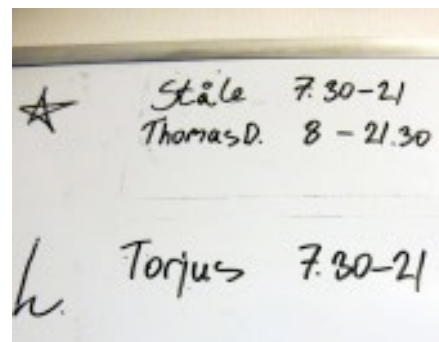 Ståle 7.30-21
Thomas D. 8 - 21.30
h. Torjus 7.30-21